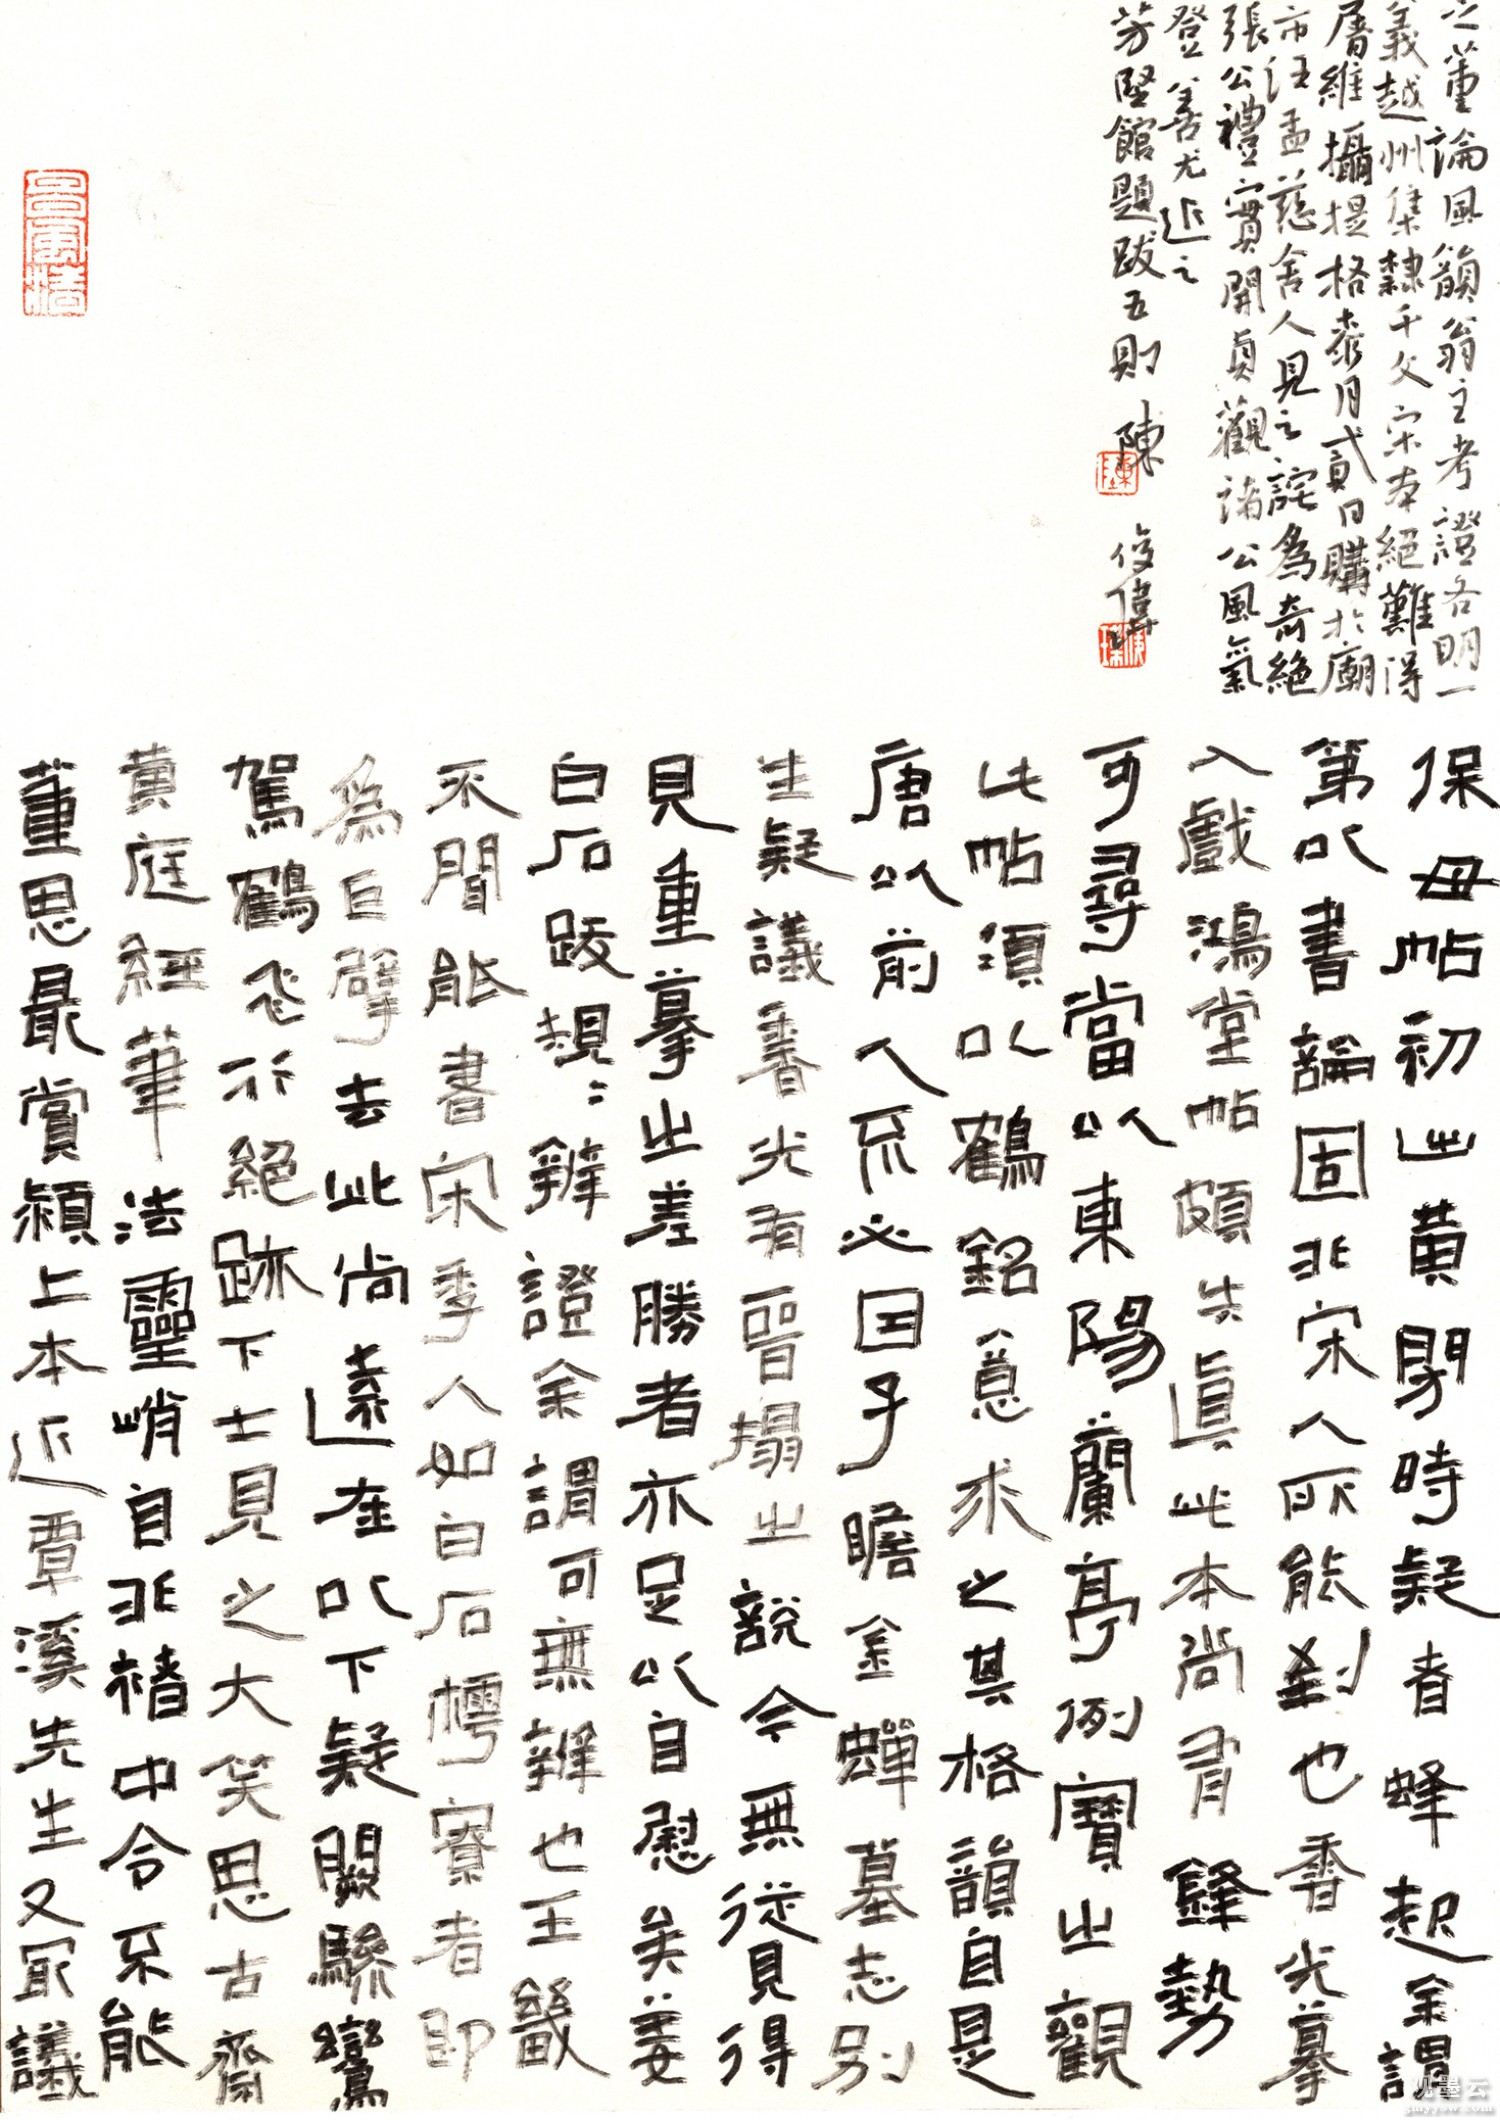 保母帖初出黃閍時疑者蜂起余謂
第以書論固非宋人所能到也香光摹
入戲鴻堂帖頗失真此本尚有鋒勢
可尋當以東陽蘭亭例寶之觀
此帖須以鶴銘意求之其格韻自是
唐以前人不必因子瞻金蟬墓志別
生疑議香光有晉搨之說今無從見得
見重摹之差勝者亦足以自慰矣姜
白石跋覶〻辨證余謂可無辨也王畿
不聞能書宋季人如白石樗寮者即
為巨擘去此尚遠在以下疑闕驂鸞
駕鶴飛行絕跡下士見之大笑思古齋
黃庭經筆法靈峭自非褚中令不能
董思最賞潁上本近覃溪先生又冣議
之董論風韻翁主考證各明一
義越州集隸千文宋本絕難得
屠維攝提格桼月貳日購於廟
市汪孟慈舍人見之詫為奇絕
張公禮實開貞觀諸公風氣
登善尤近之
芳堅館題跋五則 陳俊偉
陳
观墨云